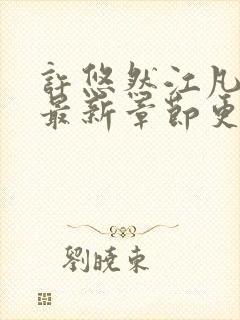 許悠然江凡
最新章節更
劉曉東